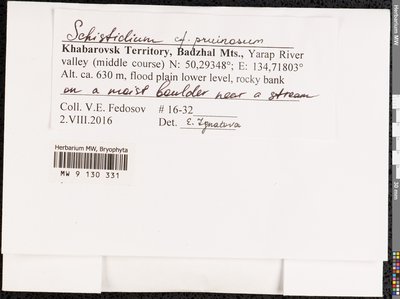 Schistidium cf. pruinosum
Khabarovsk Territory, Badzhal Mts., Yarap River
valley (middle course) N: 50,29348°; E: 134,71803°
Alt. ca. 630 m, flood plain lower level, rocky bank
on a moist boulder near a stream
Coll. V.E. Fedosov # 16-32
2.VIII.2016 Det. E. Ignatova
Herbarium MW, Bryophyta
MW 9 130 331
Herbarium MW
30 mm